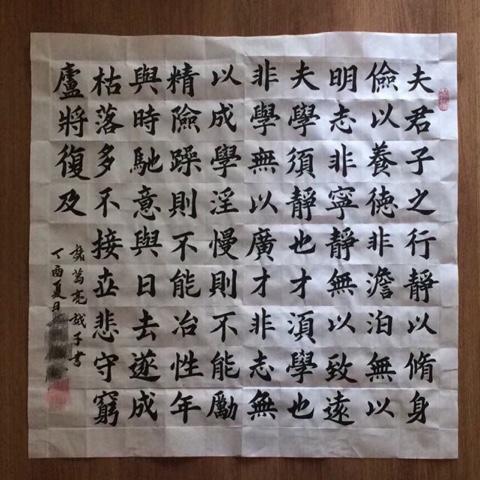 夫君子之行靜以脩身
儉以養德非澹泊無以
明志非寧靜無以致遠
夫學須靜也才須學也
非學無以廣才非志無
以成學淫慢則不能勵
精險躁則不能冶性年
與時馳意與日去遂成
枯落多不接世悲守窮
廬將復及
諸葛亮誡子書
丁酉夏月